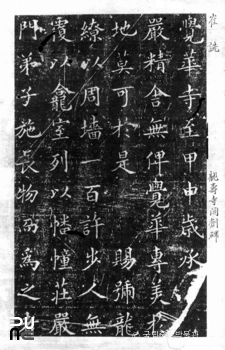 崔詵
龍壽寺開創碑
覺華寺至甲申歲
嚴精舍無俾覺華專美於
地莫可於是 賜號龍
繚以周墻一百許步人無
覆以龕室列以幡幢莊嚴
門弟子施長物而爲之